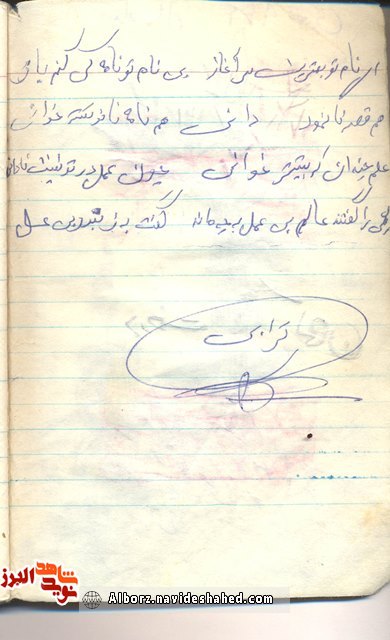 ای نام تو بهترین سرآغاز بی نام تو نامه کی کنم باز
هم قصه نانمود دانی هم نامه نانوشته خوانی
علم چندان که بیشتر خوانی چون عمل در تو نیست نادانی
را گفتند عالم بی عمل به چه ماند گفت به زنبور بی عسل
نوید شاهد البرز
Alborz.navideshahed.com